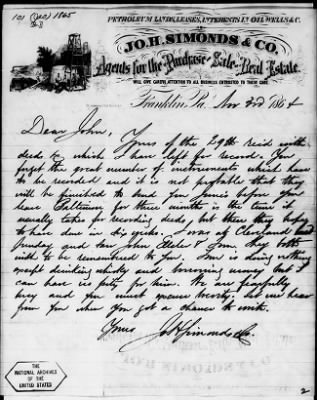 101 (Dec) 1865
PETROLEUM LANDS, LEASES, INTERESTS IN OIL WELLS &C.
JO. H. SIMONDS & CO.
Agents for the Purchase and Sale of Real Estate.
WILL GIVE CAREFUL ATTENTION TO ALL BUSINESS ENTRUSTED TO THEIR CARE.
Franklin, Pa. Nov 3rd 1864
Dear John,
Yours of the 29th recd with
deeds which I have left for record. You
forget the great number of instruments which have
to be recorded and it is not probable that they
will be finished to send you before you
leave for three months is the time it
usually takes for recording deeds, but they hope
to have done in six weeks. I was at Cleveland
Sunday and saw John & they both
wish to be remembered to you. is doing nothing
except drinking whisky and borrowing money but I
can have no pity for him. We are fearfully
busy and you must excuse brevity, let me hear
from you when you get a chance to write.
Yours JHSimonds
THE
NATIONAL ARCHIVES
OF THE
UNITED STATES
2